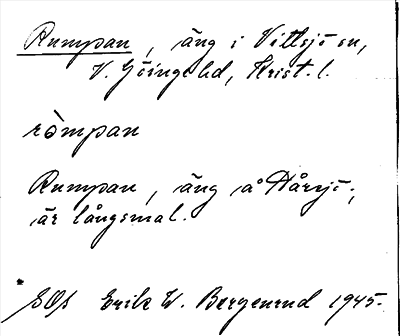 Rumpan, äng i Vittsjö sn,
V. Göinge hd, Krist. l.
ròmpan
Rumpan, äng å Hårsjö,
är långsmal.
Erik W. Bergenrud 1945.